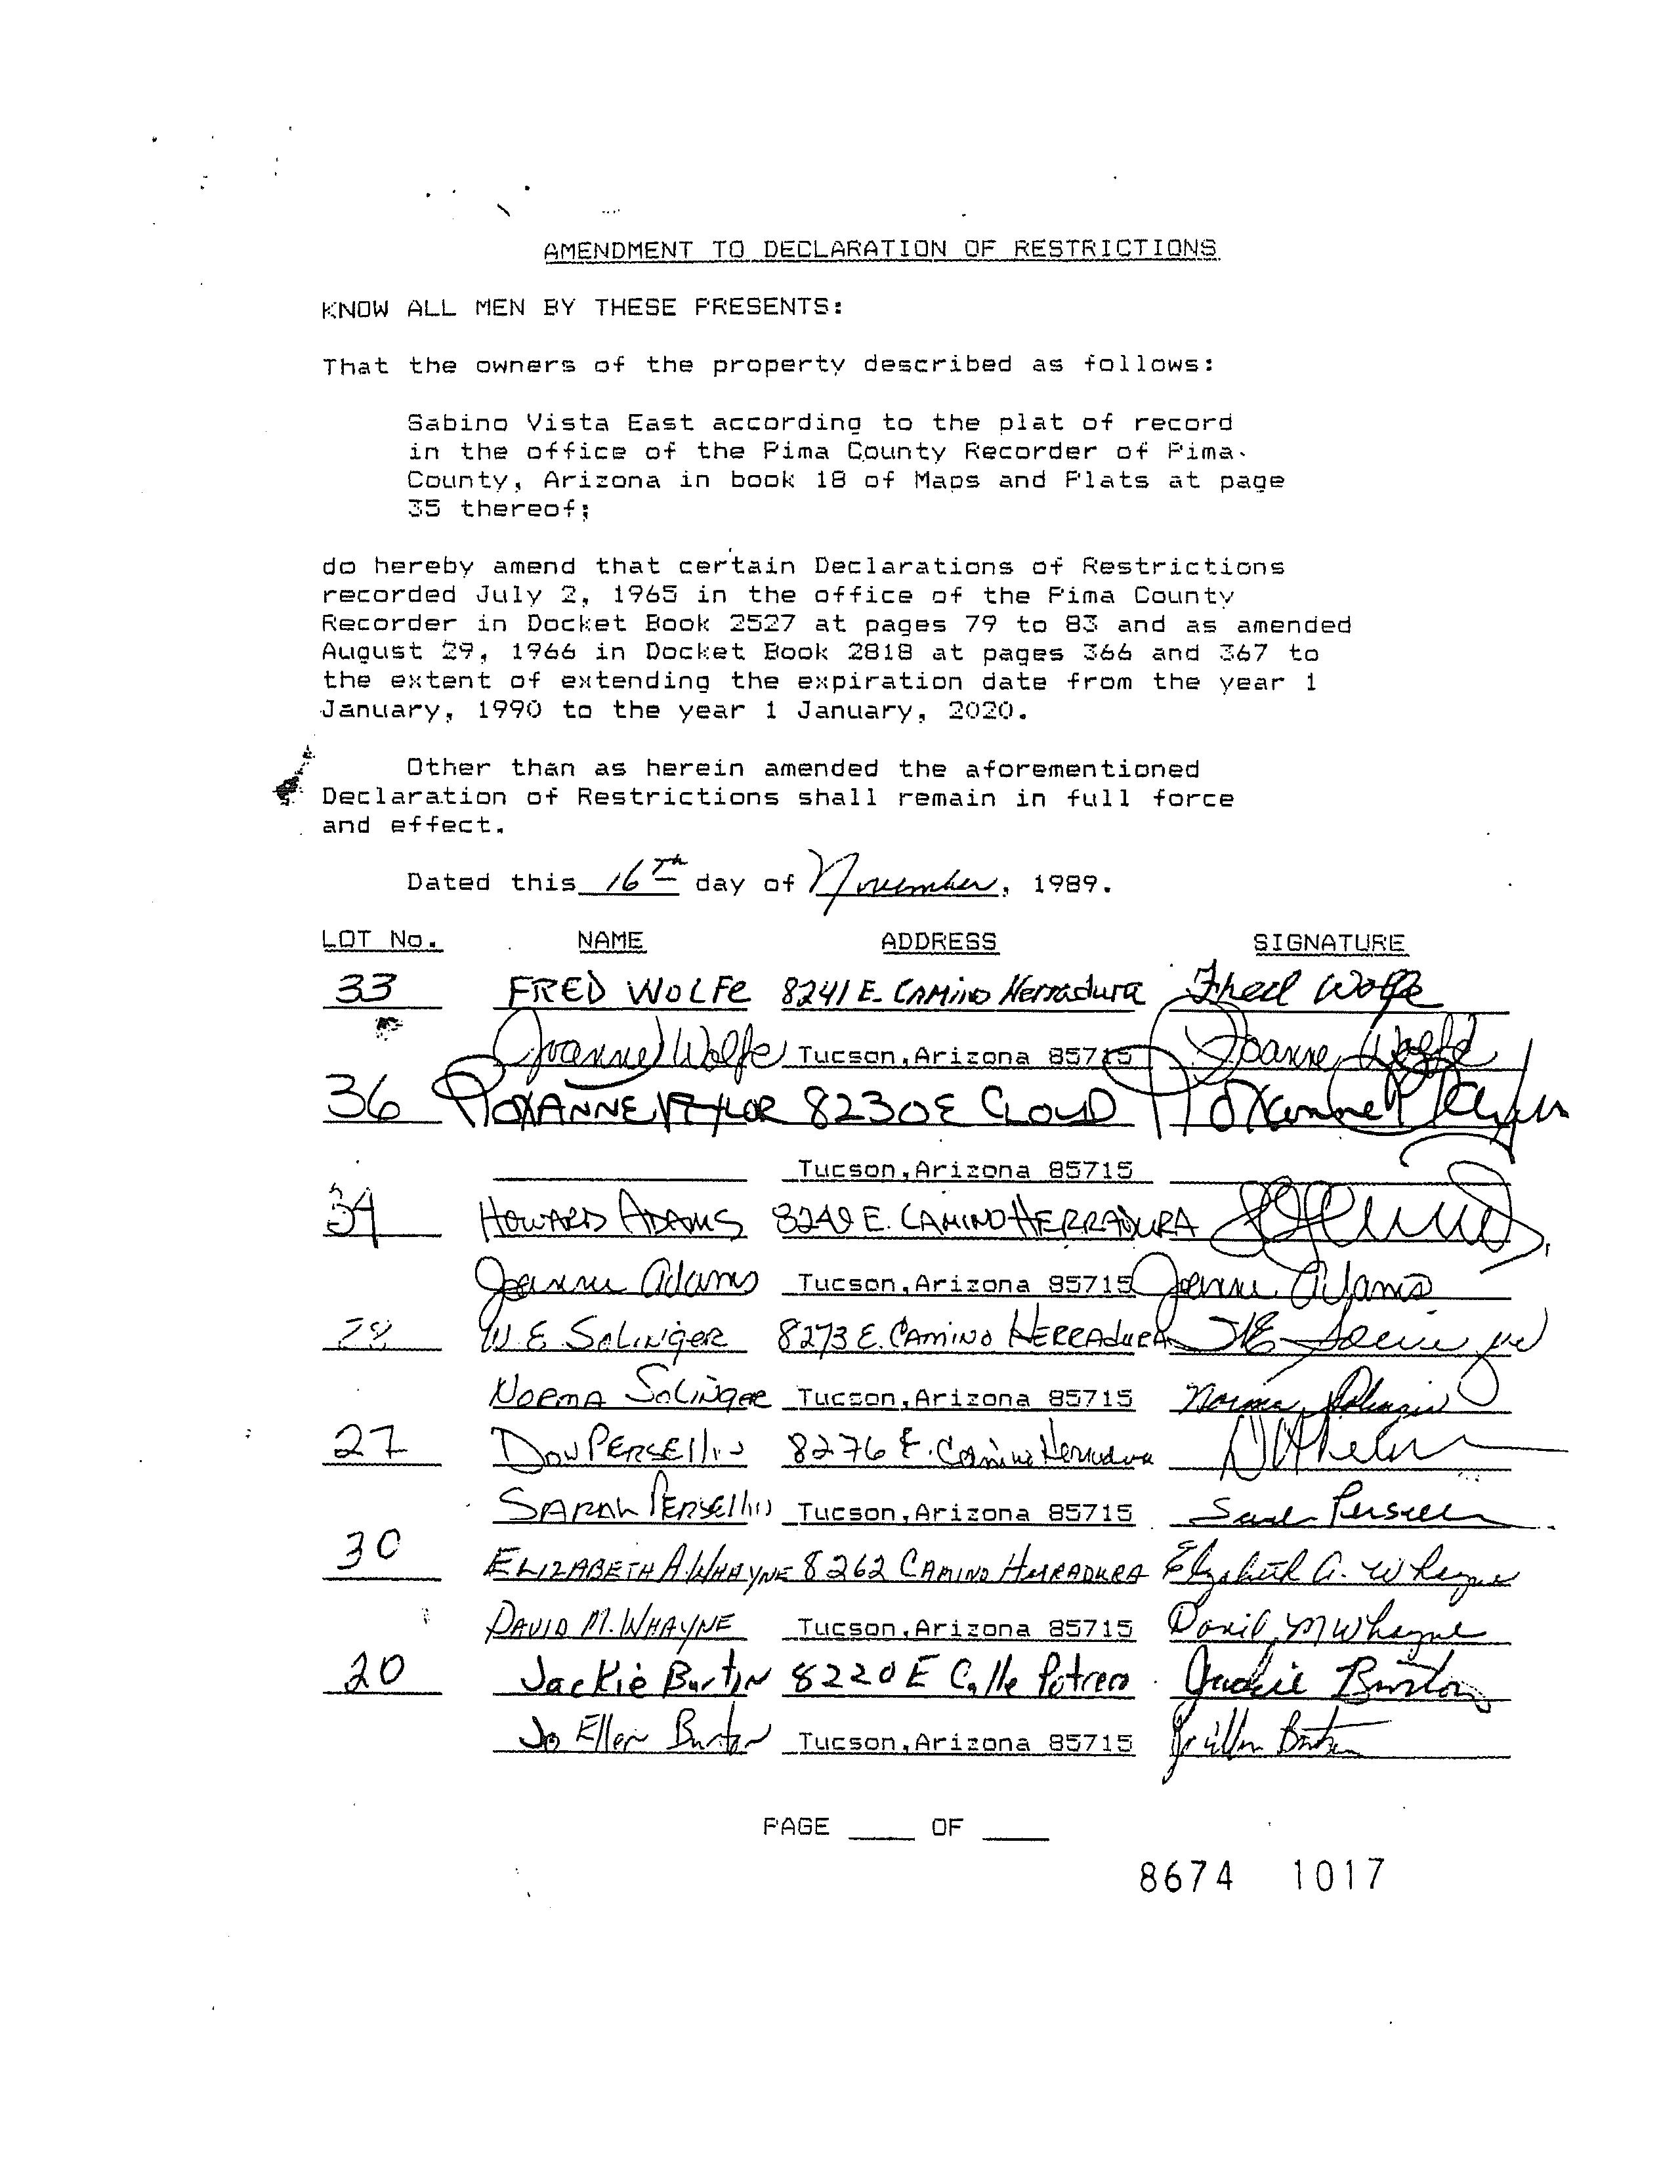 AMENDMENT TO DECLARATION OF RESTRICTIONS
KNOW ALL MEN BY THESE PRESENTS:
That the owners of the property described as follows:
Sabino Vista East according to the plat of record
in the office of the Pima County Recorder of Pima
County, Arizona in book 18 of Maps and Plats at page
35 thereof;
do hereby amend that certain Declarations of Restrictions
recorded July 2, 1965 in the office of the Pima County
Recorder in Docket Book 2527 at pages 79 to 83 and as amended
August 29, 1966 in Docket Book 2818 at pages 366 and 367 to
the extent of extending the expiration date from the year 1
January, 1990 to the year 1 January, 2020.
Other than as herein amended the aforementioned
Declaration of Restrictions shall remain in full force
and effect.
Dated this 16th day of November, 1989.
LOT No. NAME ADDRESS SIGNATURE
33 FRED WOLFE 8241 E. CAMINO Herradura Fred Wolfe
Joanne Wolfe Tucson, Arizona 85715 Joanne Wolfe
36 ROXANNE 8230 E CLOUD Roxanne
Tucson, Arizona 85715
34 HOWARD ADAMS 8249 E. CAMINO HERRADURA
Joanne Adams Tucson, Arizona 85715 Joanne Adams
28 W. E. SOLINGER 8273 E. CAMINO HERRADURA
NORMA SOLINGER Tucson, Arizona 85715 Norma Solinger
27 DON PERSELLIN 8276 E. Camino Herradura
SARAH PERSELLIN Tucson, Arizona 85715 Sarah Persellin
30 ELIZABETH A. WHAYNE 8262 CAMINO HERRADURA Elizabeth A. Whayne
DAVID M. WHAYNE Tucson, Arizona 85715 David M Whayne
20 Jackie Burton 8220 E Calle Potrero Jackie Burton
Jo Ellen Burton Tucson, Arizona 85715 Jo Ellen Burton
PAGE ____ OF ____
8674 1017